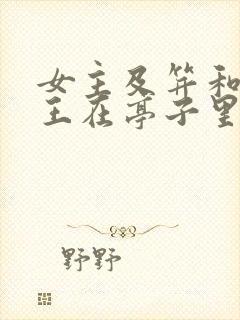 女主及笄和
王在亭子里
野野